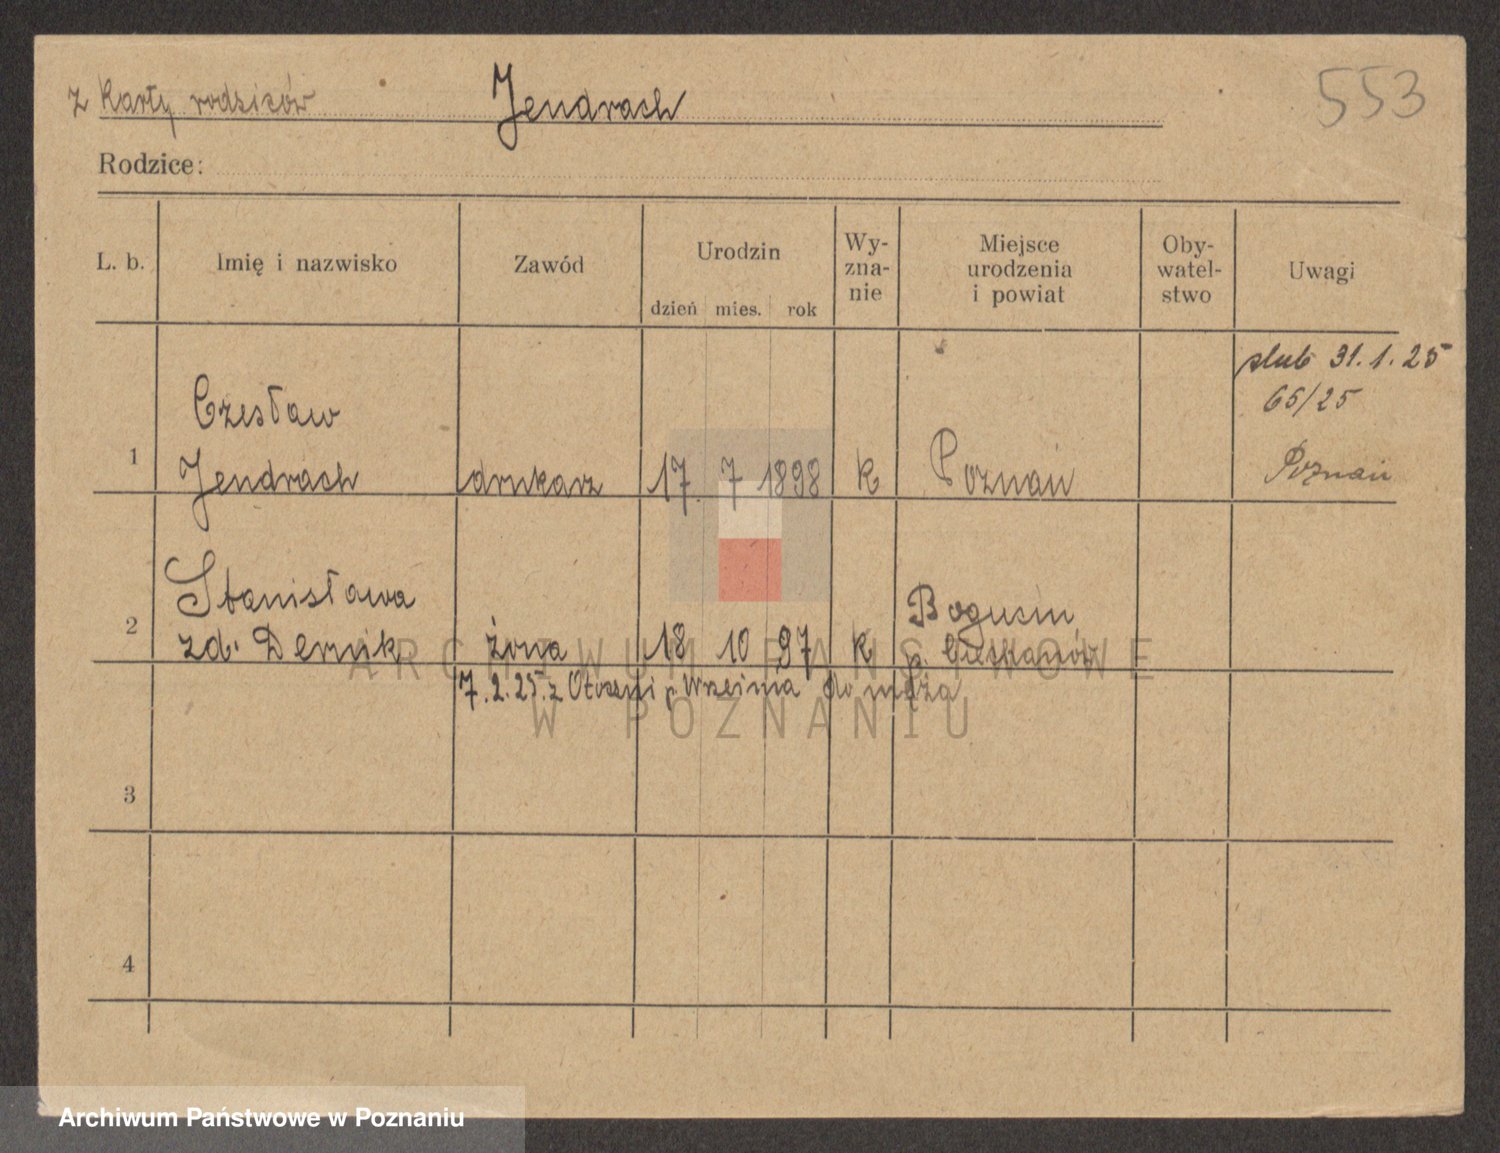 z Karty rodziców Jendrach 553
Rodzice:
L. b. Imię i nazwisko Zawód Urodzin dzień mies. rok Wy-zna-nie Miejsce urodzenia i powiat Oby-watel-stwo Uwagi
ślub 31.1.25
65/25
Poznań
1 Czesław
Jendrach drukarz 17. 7 1898 k Poznań
2 Stanisława
zd. Dernik żona 18 10 97 k
p.
7.2.25. z p. do męża
3
4
ARCHIWUM PAŃSTWOWE
W POZNANIU
Archiwum Państwowe w Poznaniu